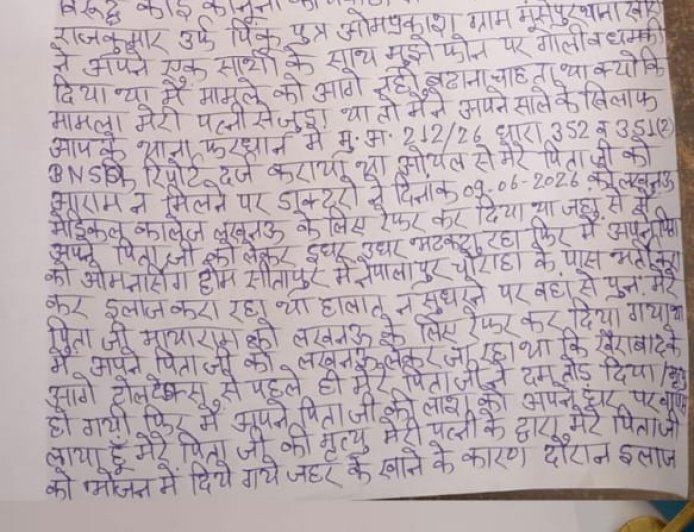 विरुद्ध कोई कानूनी
राजकुमार उर्फ पिंकू पुत्र ओमप्रकाश ग्राम मूसेपुर थाना
ने अपने एक साथी के साथ मुझे फोन पर गाली व धमकी
दिया था मैं मामले को आगे नहीं बढाना चाहता था क्योंकि
मामला मेरी पत्नी से जुड़ा था तो मैंने अपने साले के खिलाफ
आपके थाना फरधान में मु. अ. 212/26 धारा 352 व 351(2)
BNS रिपोर्ट दर्ज कराया था ओयल से मेरे पिता जी को
आराम न मिलने पर डाक्टरो ने दिनांक 09.06-2026 को लखनऊ
मेडिकल कालेज लखनऊ के लिए रेफर कर दिया था जहां से मैं
अपने पिता जी को लेकर इधर उधर भटकता रहा फिर मैं अपने पिता
को ओम नर्सिंग होम सीतापुर में नेपालापुर चौराहा के पास भर्ती करा
कर इलाज करा रहा था हालात न सुधरने पर वहां से पुनः मेरे
पिता जी मायाराम को लखनऊ के लिए रेफर कर दिया गया था
मैं अपने पिता जी को लखनऊ लेकर जा रहा था कि खैराबाद के
आगे टोलटेक्स से पहले ही मेरे पिता जी ने दम तोड़ दिया
हो गयी फिर मैं अपने पिता जी की लाश को अपने घर पर वापस
लाया हूँ मेरे पिता जी की मृत्यु मेरी पत्नी के द्वारा मेरे पिता जी
को भोजन में दिये गये जहर के खाने के कारण दौरान इलाज